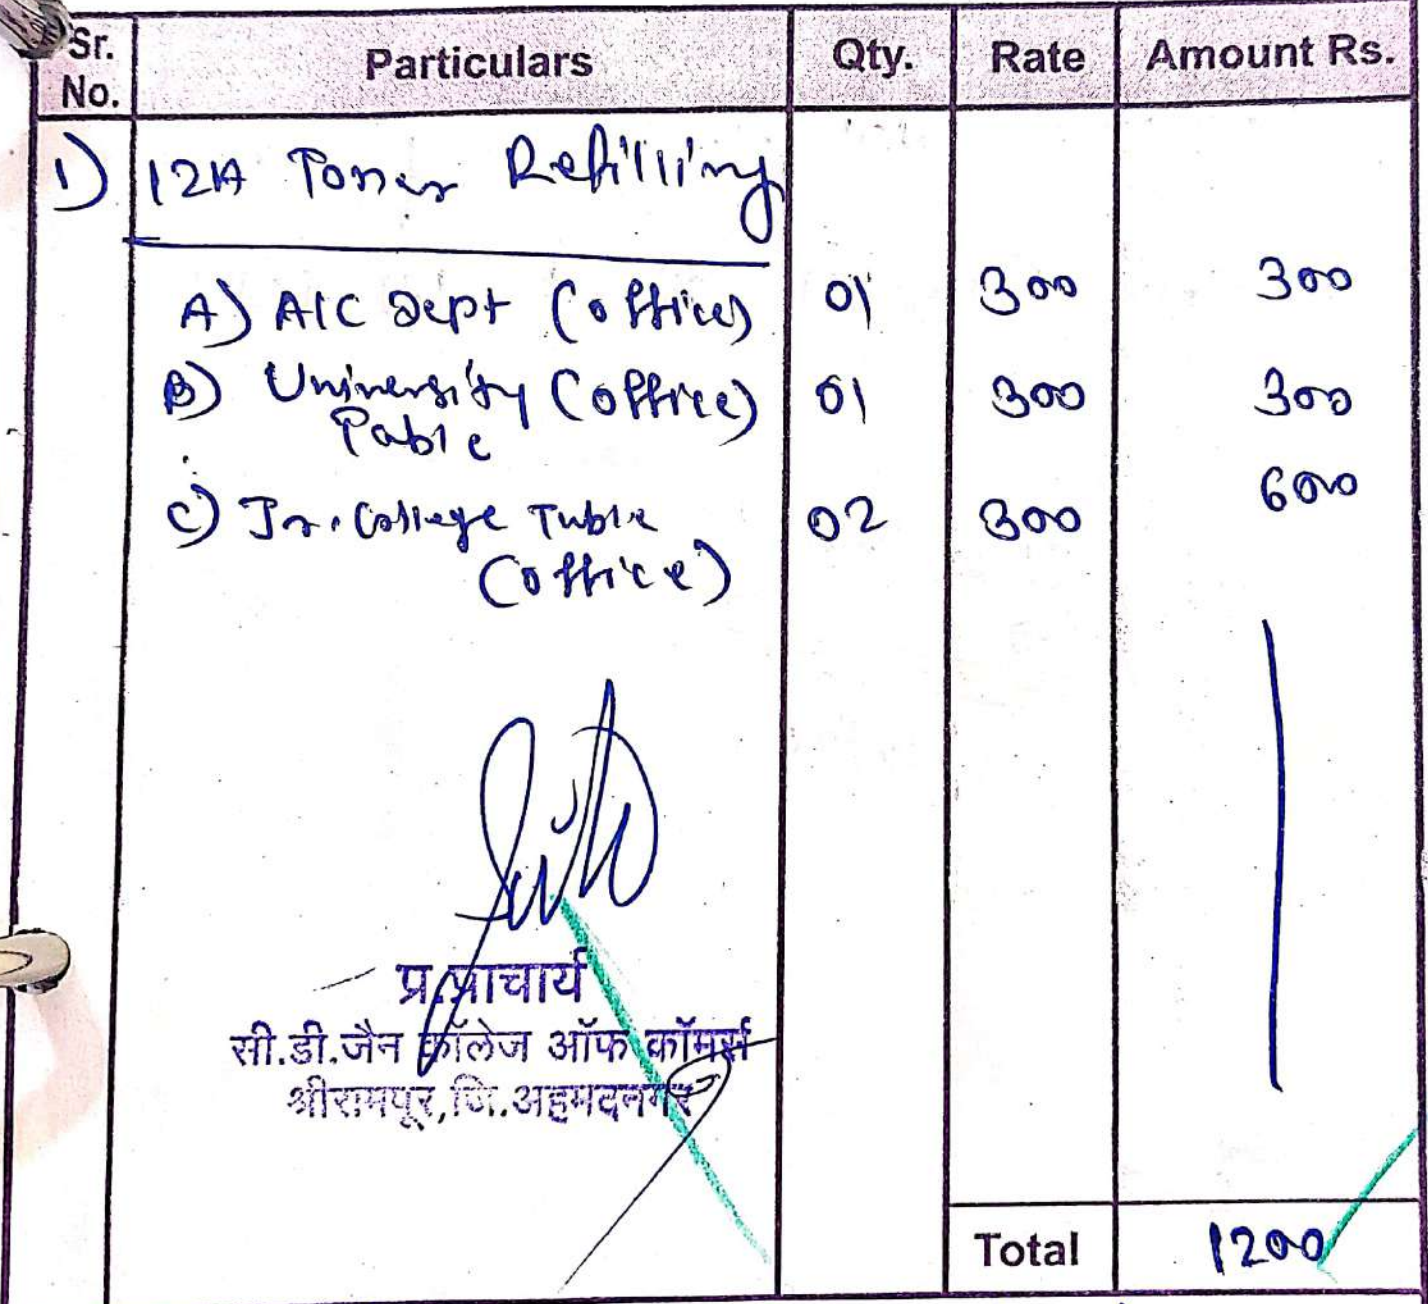 Sr. No. Particulars Qty. Rate Amount Rs.
1) 12A Toner Refilling
A) A/C Dept (office) 01 300 300
B) University (office) 01 300 300
Table
C) Jr. College Table 02 300 600
(office)
प्र.प्राचार्य
सी.डी.जैन कॉलेज ऑफ कॉमर्स
श्रीरामपूर,जि.अहमदनगर
Total 1200